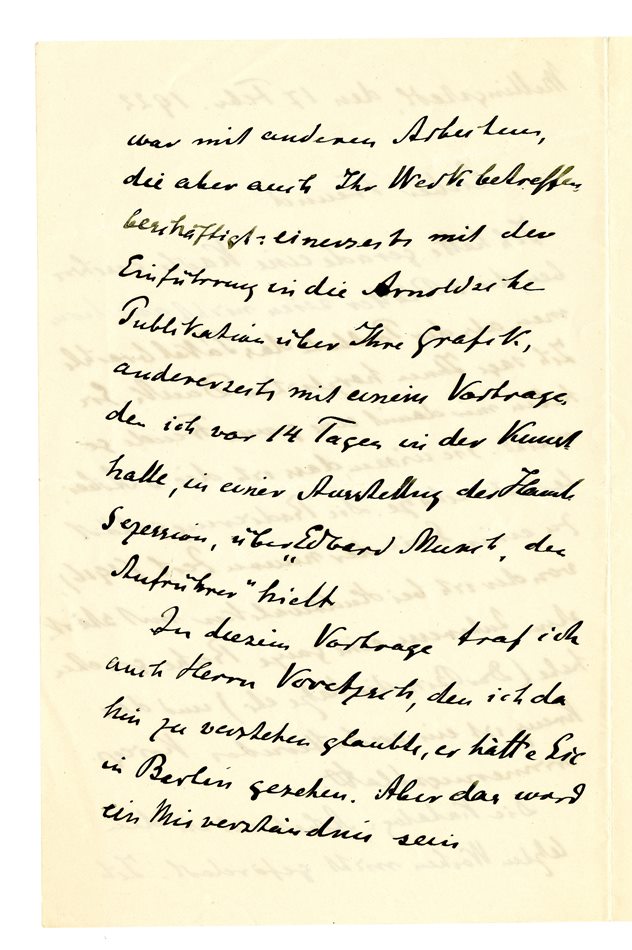 war mit anderen Arbeiten,
die aber auch Ihr Werk betreffen
beschäftigt: einerzeits mit der
Einführung in die Arnoldsche
Publikation über Ihre Grafik,
andererzeits mit einem Vortrage,
den ich vor 14 Tagen in der Kunst
halle, in einer Ausstellung der Hamb
Sezession, über „Edvard Munch, der
Aufrührer“ hielt
In diesem Vortrage traf ich
auch Herrn Voretzsch, den ich da
hin zu verstehen glaubte, er hätte Sie
in Berlin gesehen. Aber das ward
ein Misverständnis sein